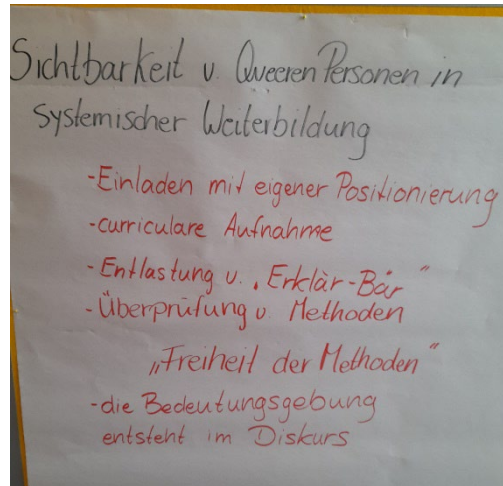 Sichtbarkeit v. Queeren Personen in
Systemischer Weiterbildung
-Einladen mit eigener Positionierung
-curriculare Aufnahme
-Entlastung v. „Erklär-Bär"
-Überprüfung v. Methoden
„Freiheit der Methoden"
-die Bedeutungsgebung
entsteht im Diskurs